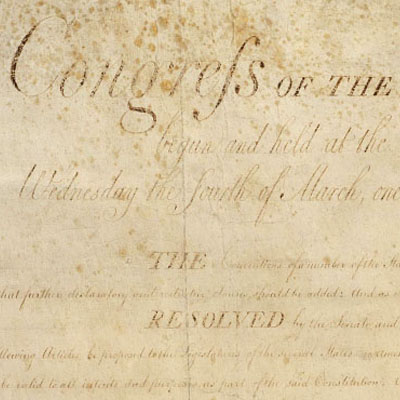 Congreſs OF THE
begun and held at the
Wednesday the Fourth of March, one
THE Conventions of a number of the Sta
that further declaratory and restrictive clauses should be added: And as
RESOLVED by the Senate and
ollowing Articles be proposed to the Legislatures of the several States
be valid to all intents and purposes, as part of the said Constitution.